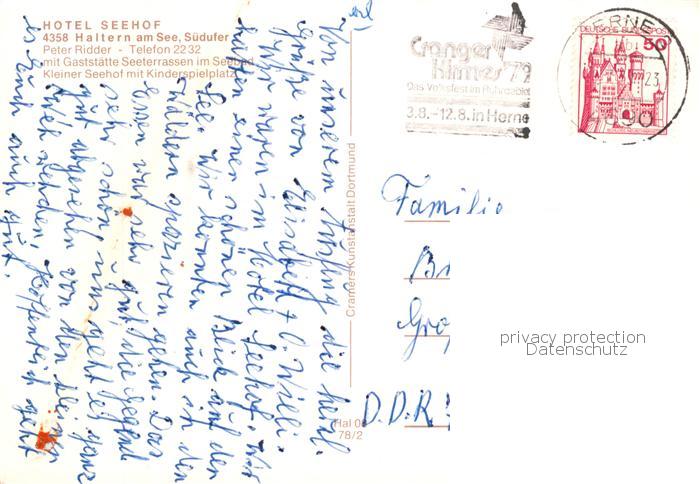 HOTEL SEEHOF
4358 Haltern am See, Südufer
Peter Ridder - Telefon 22 32
mit Gaststätte Seeterrassen im Seebad
Kleiner Seehof mit Kinderspielplatz
Von unserem Ausflug die herzl.
Grüße von Elisabeth + O. Willi.
Wir waren im Hotel Seehof. Wir
hatten einen schönen Blick auf den
See. Wir konnten auch in den
Wäldern spazieren gehen. Das
Essen war sehr gut die Gegend
sehr schön. uns geht es ganz
gut abgesehen von den kleinen
Hoffentlich geht
es Euch auch gut.
Cramers Kunstanstalt Dortmund
Hal 0
78/2
Cranger
Kirmes '79
Das Volksfest im Ruhrgebiet
3.8.-12.8. in Herne
HERNE
23
4690
DEUTSCHE BUNDESPOST
50
Familie
Br
Gro
D.D.R.
privacy protection
Datenschutz